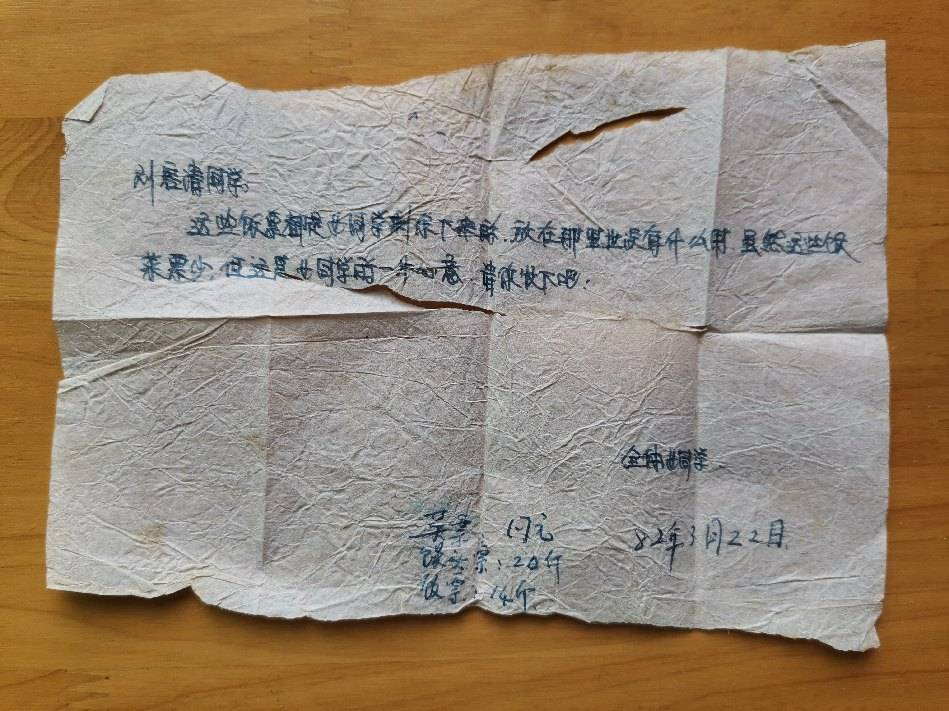 刘居清同学:
这些饭票都是女同学剩余下来的,放在那里也没有什么用,虽然这些饭
菜票少,但这是女同学的一片心意,请你收下吧.
全体女同学.
82年3月22日.
菜票: 17元
馍头票: 20斤
饭票: 14斤